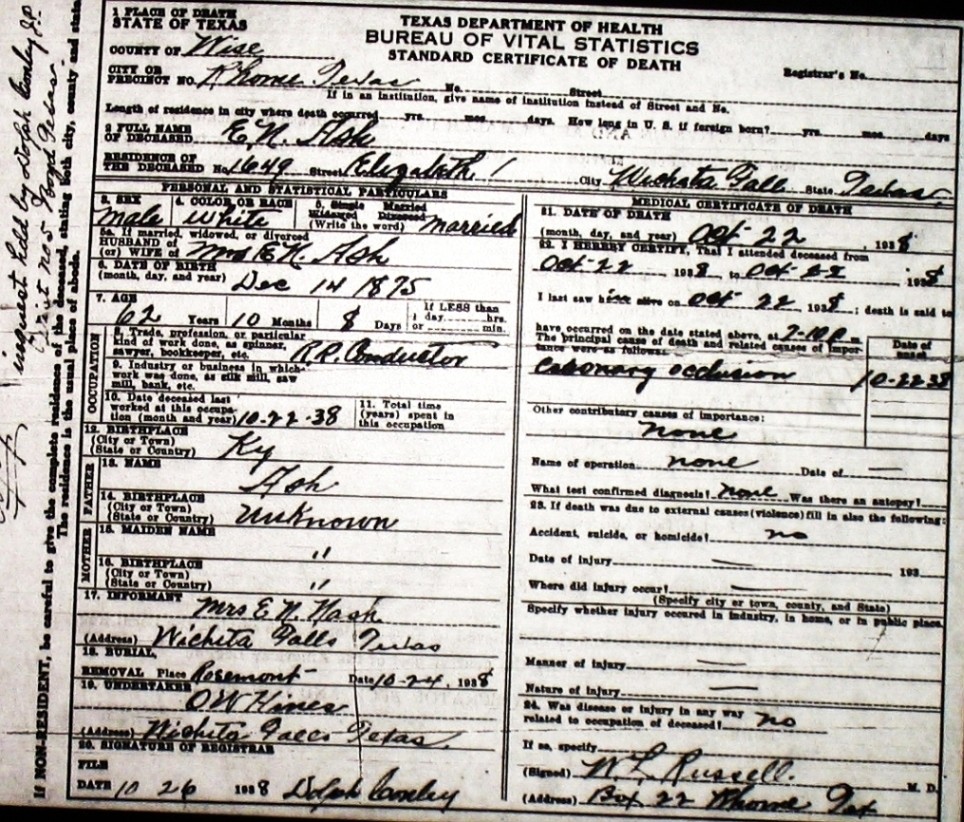 1 PLACE OF DEATH
STATE OF TEXAS
TEXAS DEPARTMENT OF HEALTH
BUREAU OF VITAL STATISTICS
STANDARD CERTIFICATE OF DEATH
COUNTY OF Wise
Registrar's No.
CITY OR
PRECINCT NO. Rhome Texas No. Street
If in an institution, give name of institution instead of Street and No.
Length of residence in city where death occurred yrs. mos. days. How long in U. S. if foreign born? yrs. mos. days
2 FULL NAME
OF DECEASED E. N. Ash
RESIDENCE OF
THE DECEASED No. 1649 Street Elizabeth City Wichita Fall State Texas
PERSONAL AND STATISTICAL PARTICULARS
3. SEX
male
4. COLOR OR RACE
White
5. Single Married
Widowed Divorced
(Write the word) married
5a. If married, widowed, or divorced
HUSBAND of
(or) WIFE of Mrs E. N. Ash
6. DATE OF BIRTH
(month, day, and year) Dec 14 1875
7. AGE
62 Years 10 Months 8 Days
If LESS than
1 day hrs.
or min.
OCCUPATION
8. Trade, profession, or particular
kind of work done, as spinner,
sawyer, bookkeeper, etc. R.R. Conductor
9. Industry or business in which
work was done, as silk mill, saw
mill, bank, etc.
10. Date deceased last
worked at this occupa-
tion (month and year) 10-22-38
11. Total time
(years) spent in
this occupation
12. BIRTHPLACE
(City or Town)
(State or Country) Ky
FATHER
13. NAME
Ash
14. BIRTHPLACE
(City or Town)
(State or Country) Unknown
MOTHER
15. MAIDEN NAME
"
16. BIRTHPLACE
(City or Town)
(State or Country) "
17. INFORMANT
Mrs E. N. Nash
(Address) Wichita Falls Texas
18. BURIAL,
REMOVAL Place Rosemont Date 10-24 1938
19. UNDERTAKER
O W Hines
(Address) Wichita Falls Texas.
20. SIGNATURE OF REGISTRAR
FILE
DATE 10 26 1938 Dolph Conley
MEDICAL CERTIFICATE OF DEATH
21. DATE OF DEATH
(month, day, and year) Oct 22, 1938.
22. I HEREBY CERTIFY, That I attended deceased from
Oct-22 1938, to Oct-22 1938
I last saw alive on Oct 22 1938; death is said to
have occurred on the date stated above, at m.
The principal cause of death and related causes of impor-
tance were as follows:
Date of
onset
Coronary occlusion 10-22-38
Other contributory causes of importance:
none
Name of operation none Date of —
What test confirmed diagnosis? none Was there an autopsy?
23. If death was due to external causes (violence) fill in also the following:
Accident, suicide, or homicide? no
Date of injury — 193
Where did injury occur? —
(Specify city or town, county, and State)
Specify whether injury occured in industry, in home, or in public place.
Manner of injury —
Nature of injury —
24. Was disease or injury in any way
related to occupation of deceased? no
If so, specify
(Signed) W. L. Russell. M. D.
(Address) Box 22 Rhome Tex
If NON-RESIDENT, be careful to give the complete residence of the deceased, stating both city, county and state.
The residence is the usual place of abode.
inquest held by Dolph Conley J.P.
Prect no 5 Boyd Texas